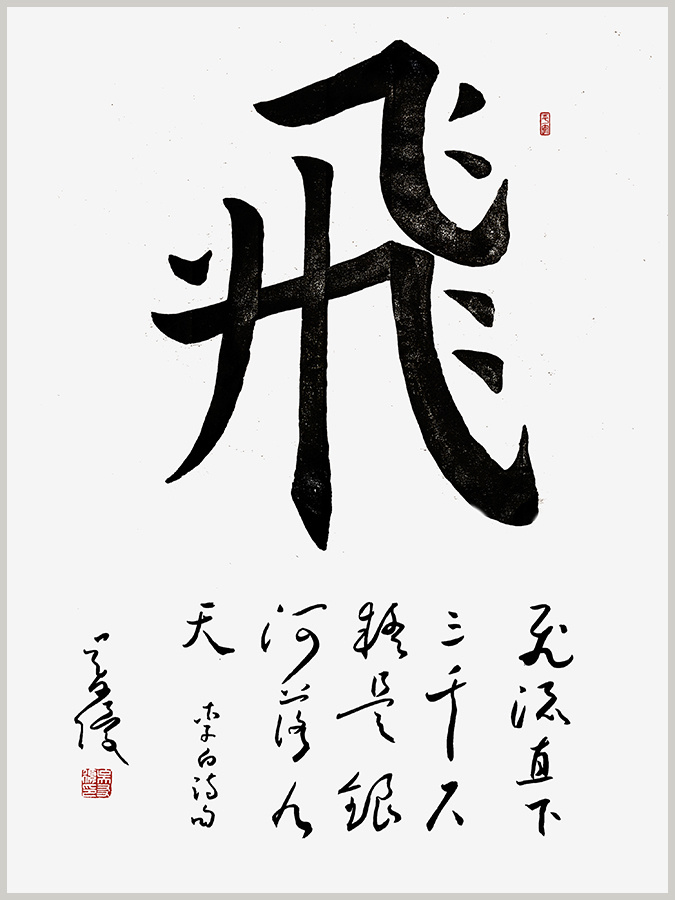 飛
飛流直下
三千尺
疑是銀
河落九
天
李白詩句